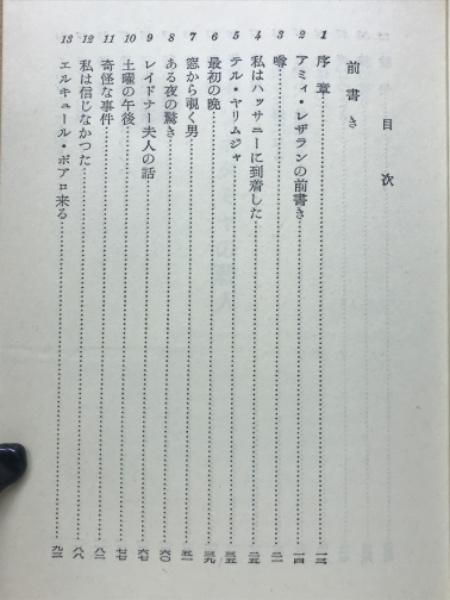 目次
前書き
1 序章……一三
2 アミィ・レザランの前書き……一四
3 噂……二一
4 私はハッサニーに到着した……二五
5 テル・ヤリムジャ……三五
6 最初の晩……三九
7 窓から覗く男……五一
8 ある夜の驚き……六〇
9 レイドナー夫人の話……六七
10 土曜の午後……七七
11 奇怪な事件……八二
12 私は信じなかつた……八八
13 エルキュール・ポアロ来る……九三